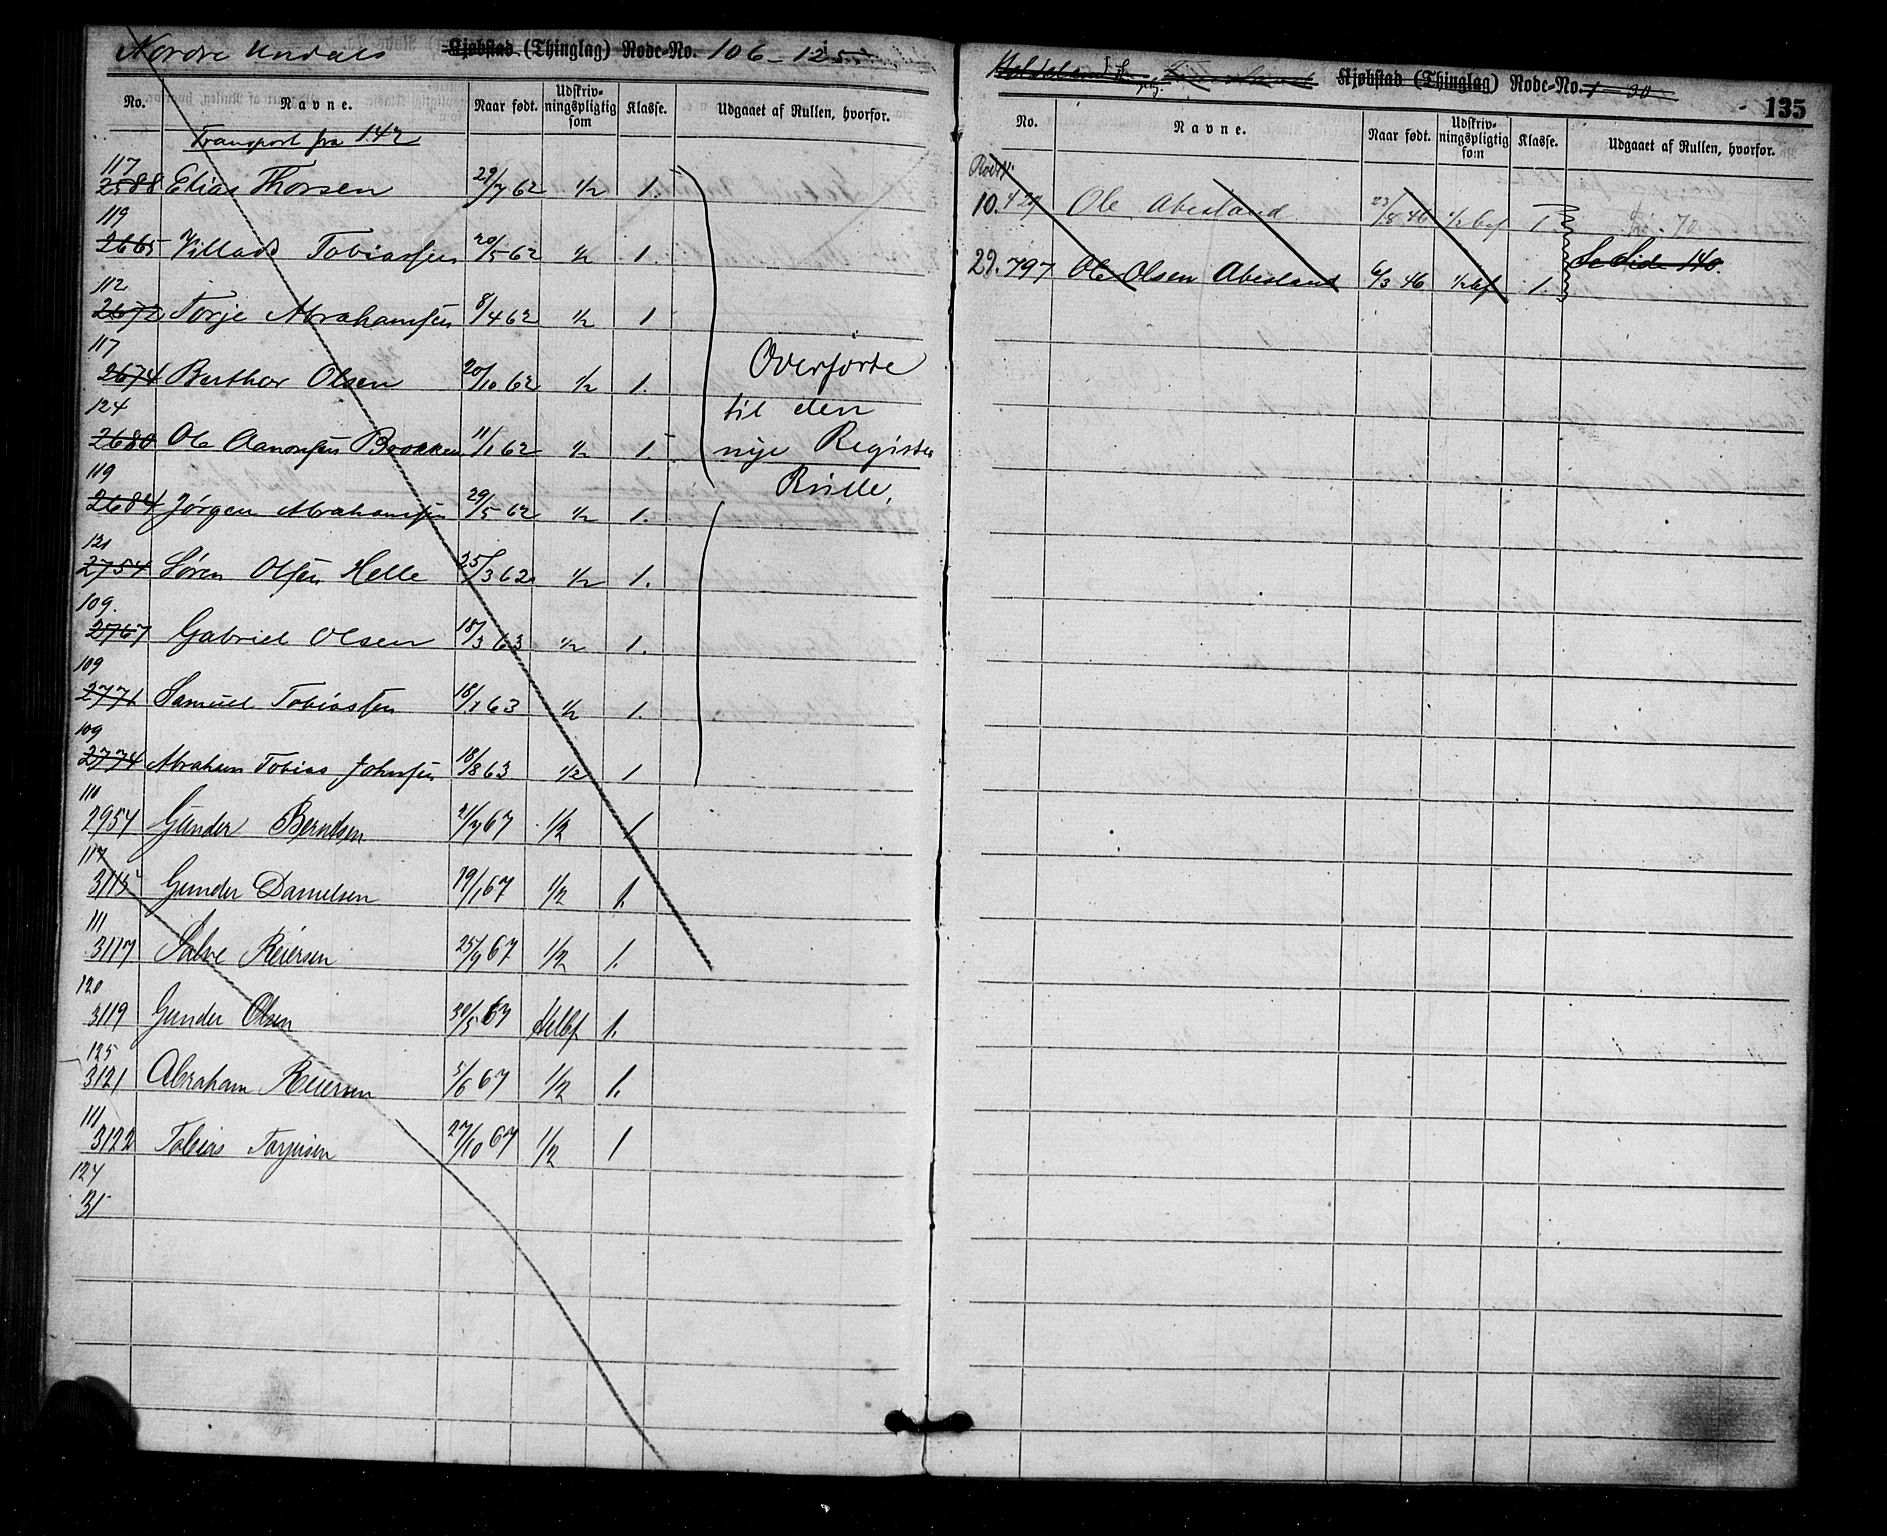 Nordre Undals Kjøbstad (Thinglag) Rode-No. 106 - 125
No. Navne. Naar født. Udskrivningspligtig som Klasse. Udgaaet af Rullen, hvorfor.
Transport fra 142
117
2588 Elias Thorsen 29/7 62 1/2 1.
119
2665 Villads Tobiassen 20/5 62 1/2 1.
112
2672 Torje Abrahamsen 8/4 62 1/2 1
117
2674 Berthor Olsen 20/10 62 1/2 1.
124
2680 Ole Aanonsen 11/1 62 1/2 1.
119
2684 Jørgen Abrahamsen 29/5 62 1/2 1.
Overførte
til den
nye Register
Rulle.
121
2754 Søren Olsen Helle 25/3 62 1/2 1.
109.
2767 Gabriel Olsen 18/3 63 1/2 1.
109
2771 Samuel Tobiassen 18/1 63 1/2 1.
109
2774 Abraham Tobias Johnsen 18/8 63 1/2 1
110
2957 Gunder Berntsen 21/7 67 1/2 1
117
3115 Gunder Danielsen 19/1 67 1/2 1.
111
3117 Salve Reiersen 25/9 67 1/2 1.
120
3119 Gunder Olsen 30/5 67 1.
125
3121 Abraham Reiersen 5/6 67 1/2 1.
111
3122 Tobias Torjusen 27/10 67 1/2 1
124
31
Kjøbstad (Thinglag) Rode-No. 1 - 30
135
No. Navne. Naar født. Udskrivningspligtig som Klasse. Udgaaet af Rullen, hvorfor.
Rode
10. 429 Ole Abesland 23/8 46 1/2 bef 1.
29. 797 Ole Olsen Abesland 6/3 46 1/2 bf 1. Se Side 140.